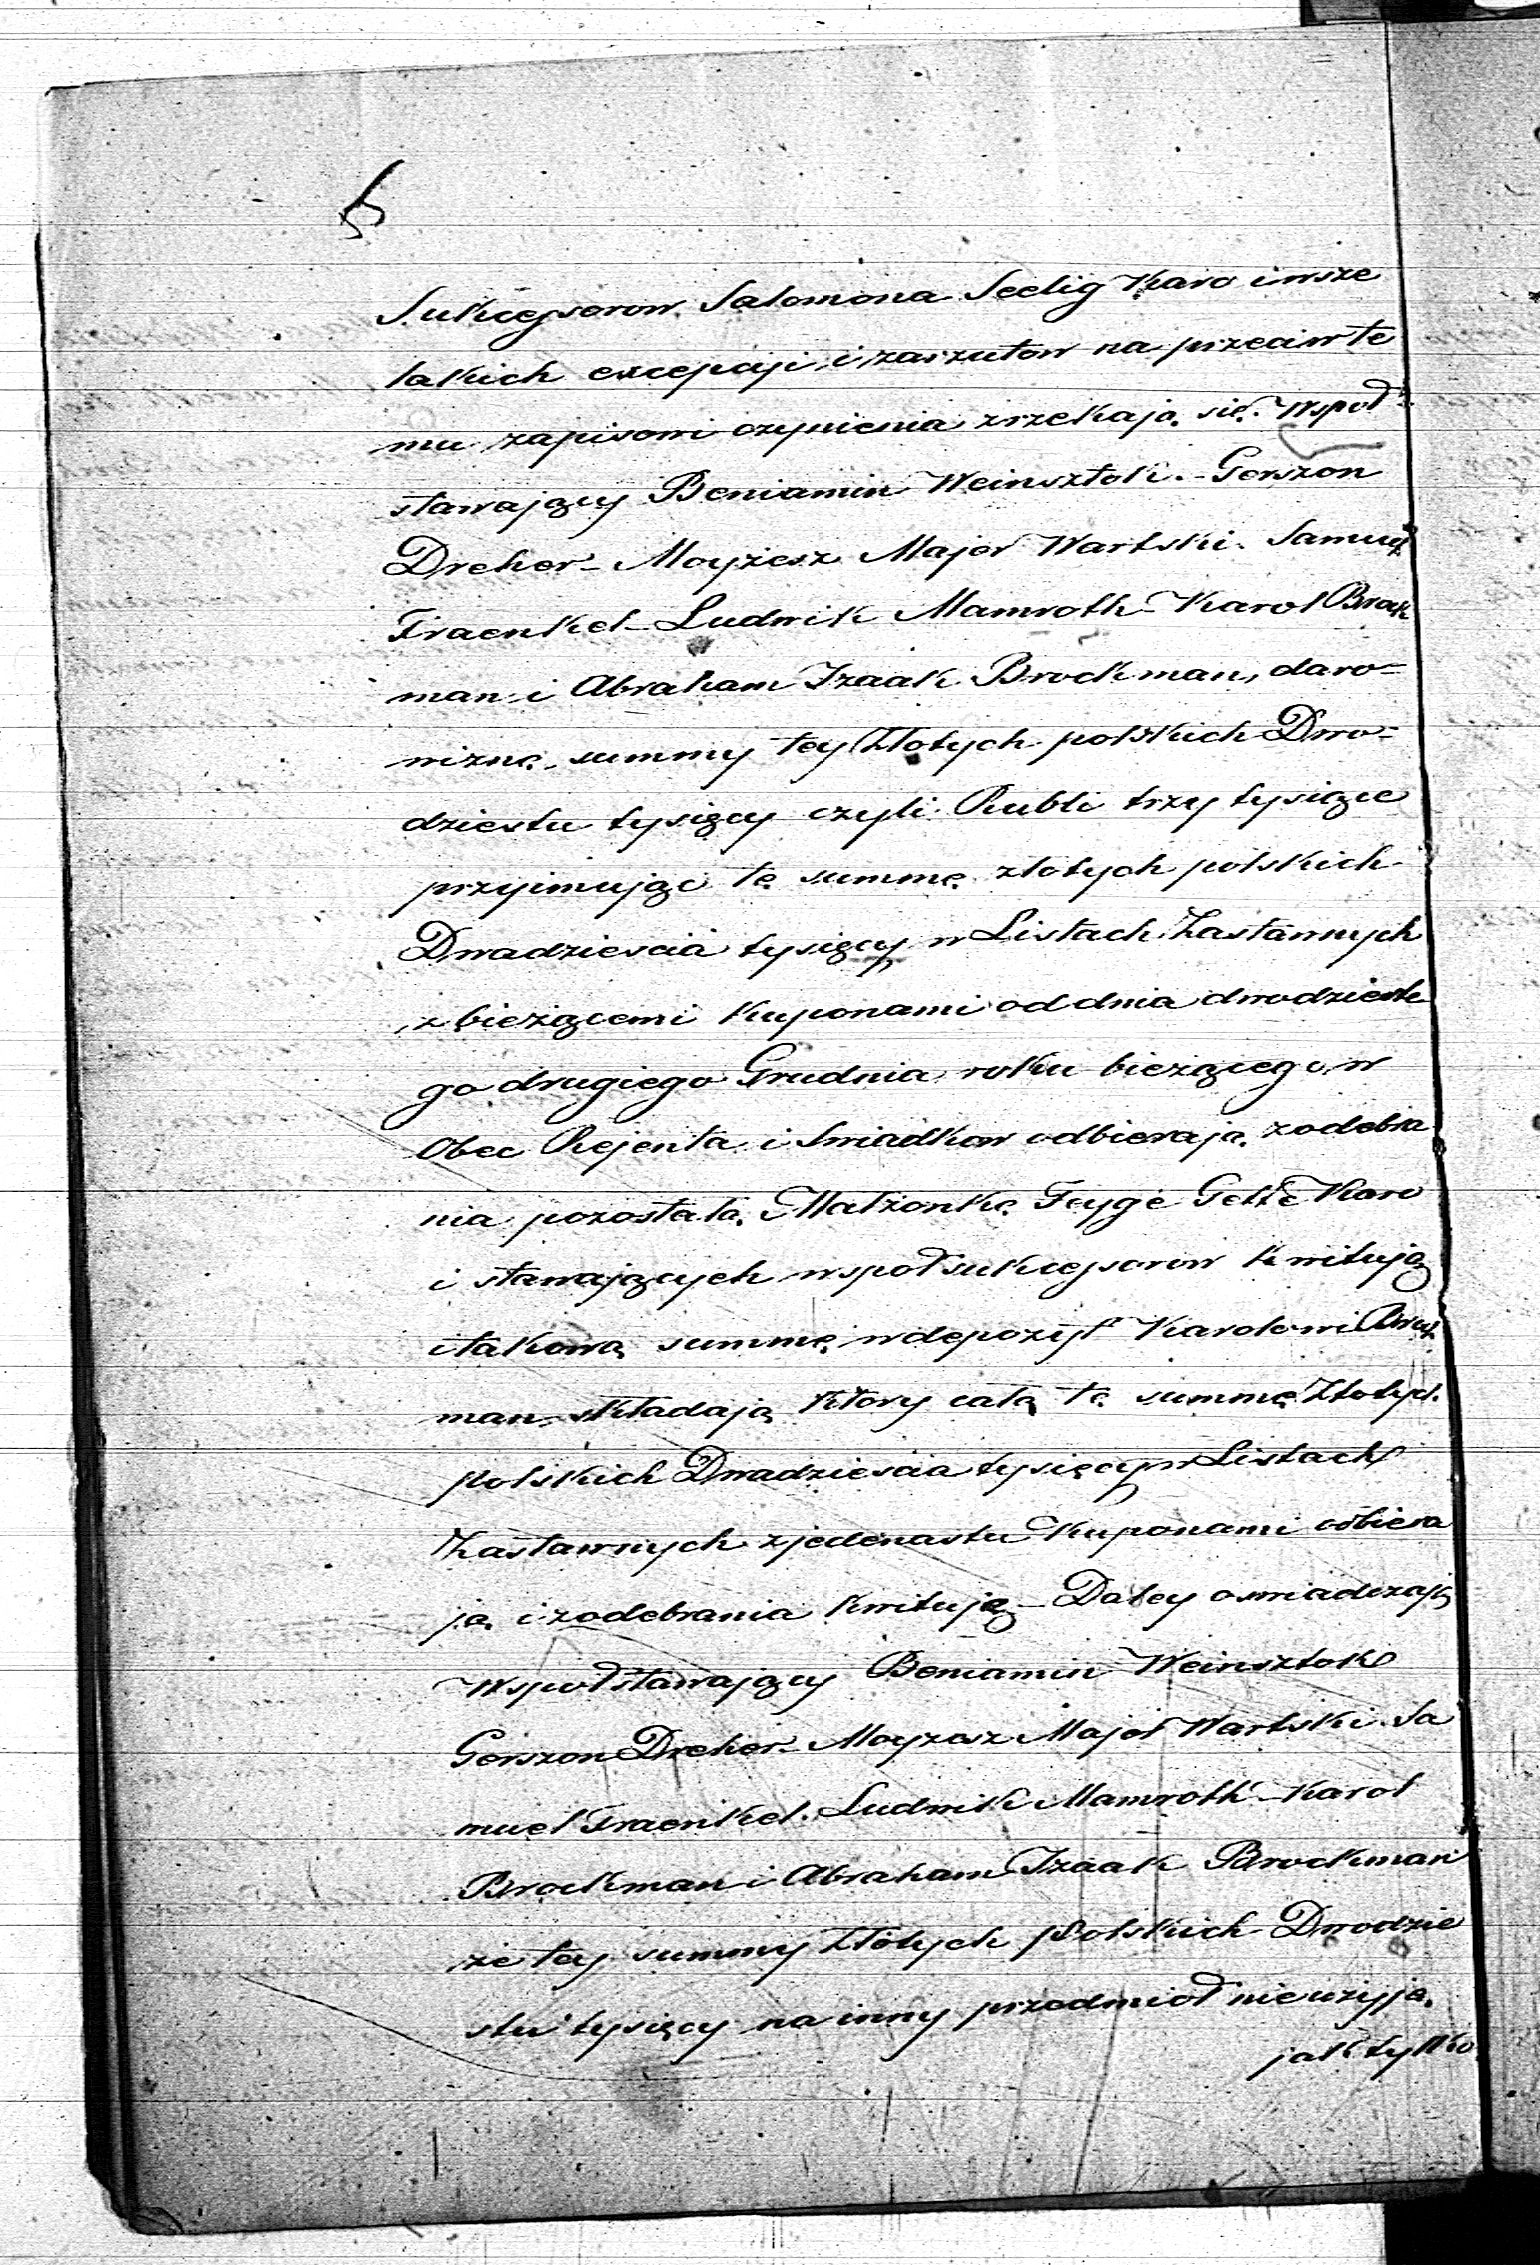 Sukcessorow Salomona Seelig Karo i wsze
lakich excepcji i zarzutow na przeciw te
mu zapisowi czynienia zrzekają się. Wspoł
stawający Beniamin Weinsztok – Gerszon
Dreher – Moyżesz Majer Wartski. Samuel
Fraenkel – Ludwik Mamroth – Karol Brock
man i Abraham Izaak Brockman, daro=
wiznę summy tey Złotych polskich Dwo=
dziestu tysięcy czyli Rubli trzy tysiące
przyimując tę summę złotych polskich
Dwadziescia tysięcy w Listach Zastawnych
z bieżącemi kuponami od dnia dwodzieste
go drugiego Grudnia roku bieżącego w
obec Rejenta i Swiadkow odbierają z odebra
nia pozostałą Małżonkę Feyge Gette Karo
i stawających wspołsukcessorow kwitują
i takową summę w depozyt Karolowi Brock
man składają ktory całą tę summę Złotych
polskich Dwadziescia tysięcy w Listach
Zastawnych z jedenastu Kuponami odbiera
ją i z odebrania kwitują – Daley oswiadczają
Wspołstawający Beniamin Weinsztok
Gerszon Dreher – Moyżesz Majer Wartski. Sa
muel Fraenkel. Ludwik Mamroth – Karol
Brockman i Abraham Izaak Brockman
że tey summy Złotych Polskich Dwodzie
stu tysięcy na inny przedmiot nie użyją
jak tylko